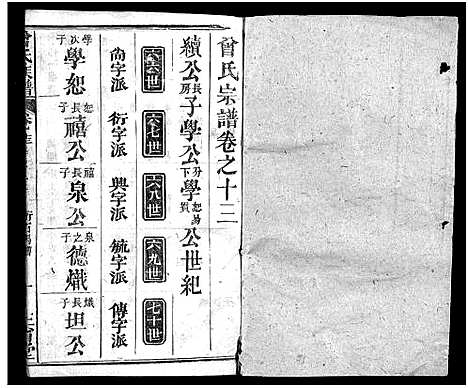 曾氏宗譜卷之十三
續公長房子學公分下學恕易公世紀
六六世 六七世 六八世 六九世 七十世
尚字派 衍字派 興字派 毓字派 傳字派
學次子 學恕
恕長子 禧公
禧長子 泉公
泉之子 德熾
熾長子 坦公
曾氏宗譜